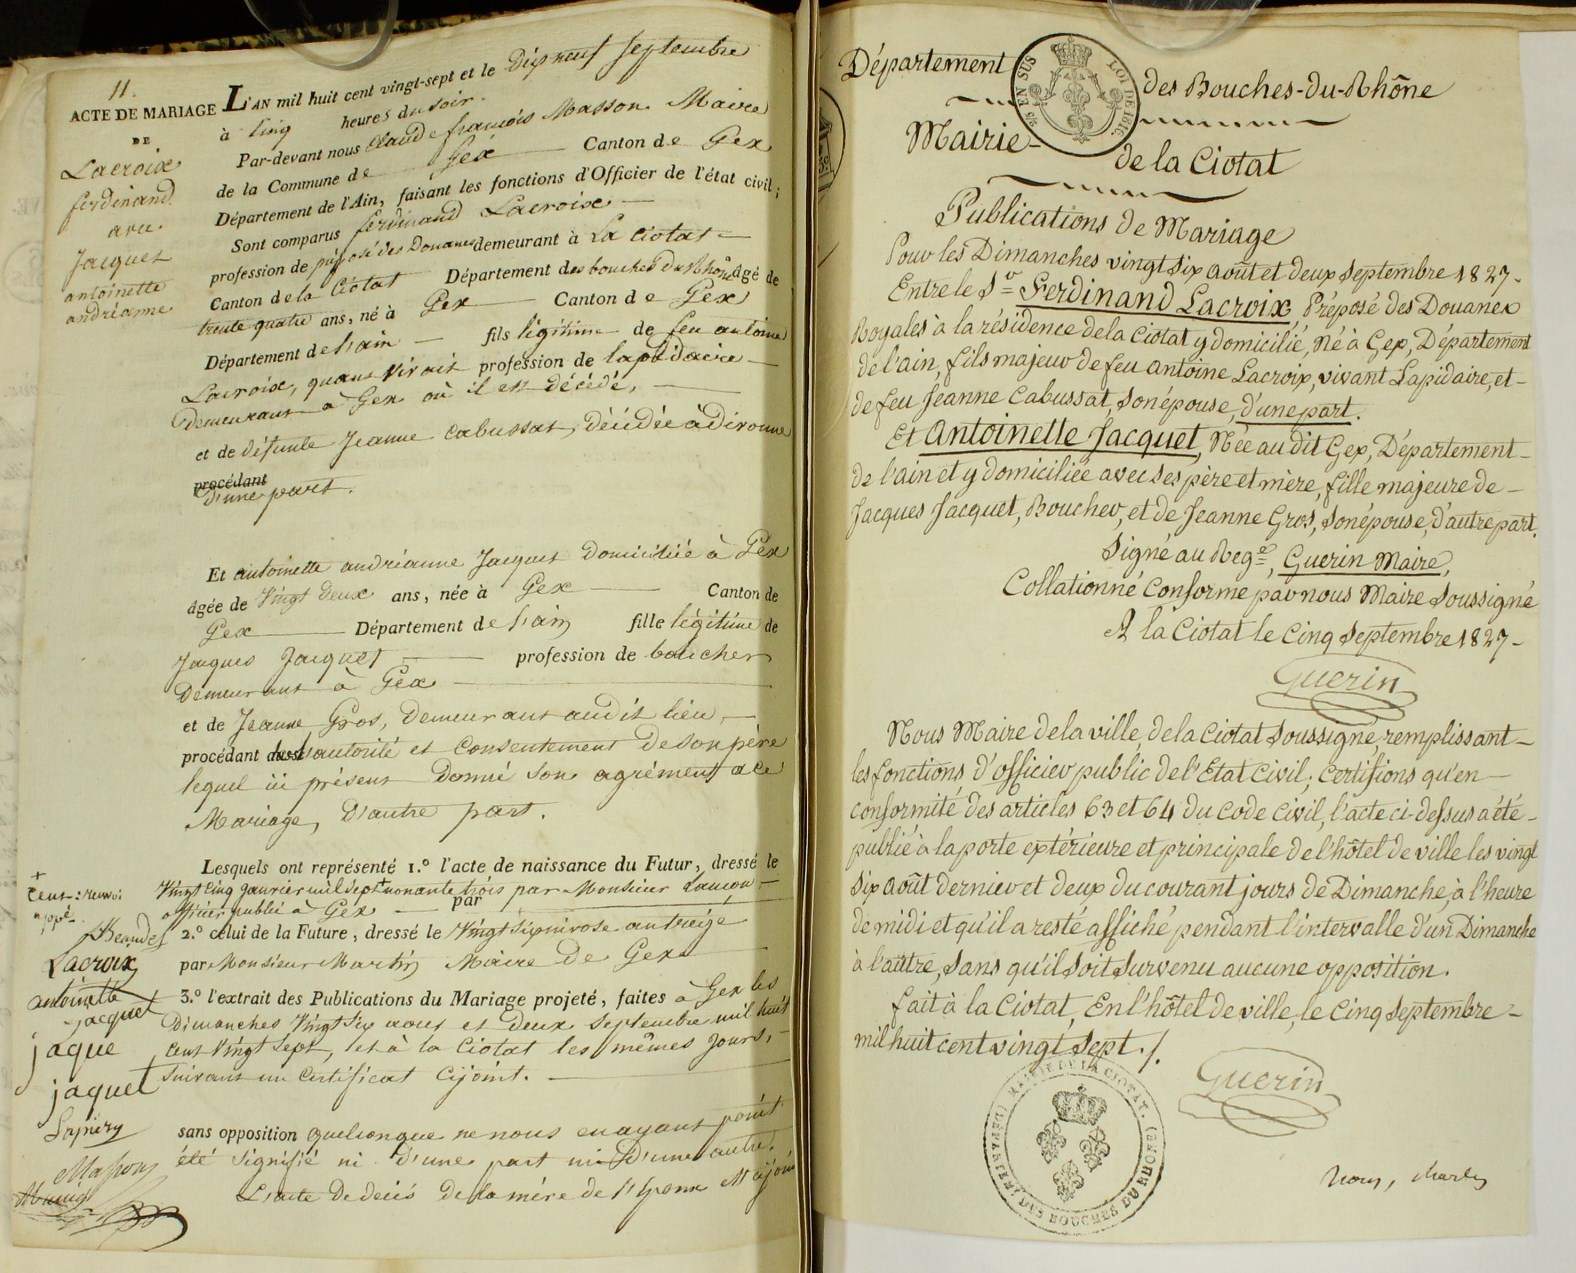 11.
ACTE DE MARIAGE
DE
Lacroix
ferdinand
avec
Jacquet
antoinette
andréanne
L'AN mil huit cent vingt-sept et le Dixneuf Septembre
à Cinq heures du soir.
Par-devant nous Claude françois Masson Maire
de la Commune de Gex Canton de Gex
Département de l'Ain, faisant les fonctions d'Officier de l'état civil;
Sont comparus ferdinand Lacroix
profession de préposé des Douanes demeurant à La Ciotat
Canton de la Ciotat Département des bouches du Rhône âgé de
trente quatre ans, né à Gex Canton de Gex
Département de l'ain fils légitime de feu antoine
Lacroix, quant vivait profession de lapidaire
demeurant à Gex où il est décédé,
et de défunte Jeanne Cabussat, décédée à divonne
procédant
d'une part.
Et antoinette andréanne Jacquet domiciliée à Gex
âgée de Vingt deux ans, née à Gex Canton de
Gex Département de l'ain fille légitime de
Jacques Jacquet profession de boucher
demeurant à Gex
et de Jeanne Gros, demeurant audit lieu,
procédant de l'autorité et consentement de son père
lequel ici présent donné son agrément à ce
Mariage, d'autre part.
Lesquels ont représenté 1.° l'acte de naissance du Futur, dressé le
Vingt Cinq Janvier mil Sept nonante trois par Monsieur
officier public à Gex par
2.° celui de la Future, dressé le Vingt Six nivose an treize
par Monsieur Martin Maire de Gex
3.° l'extrait des Publications du Mariage projeté, faites à Gex les
dimanches Vingt Six aout et deux Septembre mil huit
cent Vingt Sept, et à la Ciotat les mêmes Jours,
Suivant un Certificat Cijoint.
sans opposition quelconque ne nous en ayant point
été signifié ni d'une part ni d'une autre.
L'acte de décès de la mère de l'époux
+
Cent: renvoi
Lacroix
antoinette
jacquet
jaque
jaquet
Masson
Département des Bouches-du-Rhône
EN SUS LOI DE 1816.
Mairie de la Ciotat
Publications de Mariage
Pour les Dimanches vingt Six août et deux Septembre 1827-
Entre le Sr Ferdinand Lacroix, Préposé des Douanes
Royales à la résidence de la Ciotat y domicilié, Né à Gex, Département
de l'ain, fils majeur de feu Antoine Lacroix, vivant Lapidaire, et-
de feu Jeanne Cabussat, son épouse, d'une part.
Et Antoinette Jacquet, Née au dit Gex, Département-
de l'ain et y domiciliée avec ses père et mère, fille majeure de-
Jacques Jacquet, Boucher, et de Jeanne Gros, son épouse, d'autre part.
Signé au Regre, Guerin Maire,
Collationné Conforme par nous Maire Soussigné
A la Ciotat le Cinq Septembre 1827-
Guerin
Nous Maire de la ville de la Ciotat Soussigné, remplissant-
les fonctions d'officier public de l'Etat Civil; Certifions qu'en-
conformité des articles 63 et 64 du Code Civil, l'acte ci-dessus a été-
publié à la porte extérieure et principale de l'hôtel de ville les vingt
Six août dernier et deux du courant jours de Dimanche, à l'heure
de midi et qu'il a resté affiché pendant l'intervalle d'un Dimanche
à l'autre, Sans qu'il Soit Survenu aucune opposition.
fait à la Ciotat, En l'hôtel de ville, le Cinq Septembre-
mil huit cent vingt Sept./.
Guerin
MAIRIE DE LA CIOTAT. (DÉPARTEMENT DES BOUCHES DU RHONE)